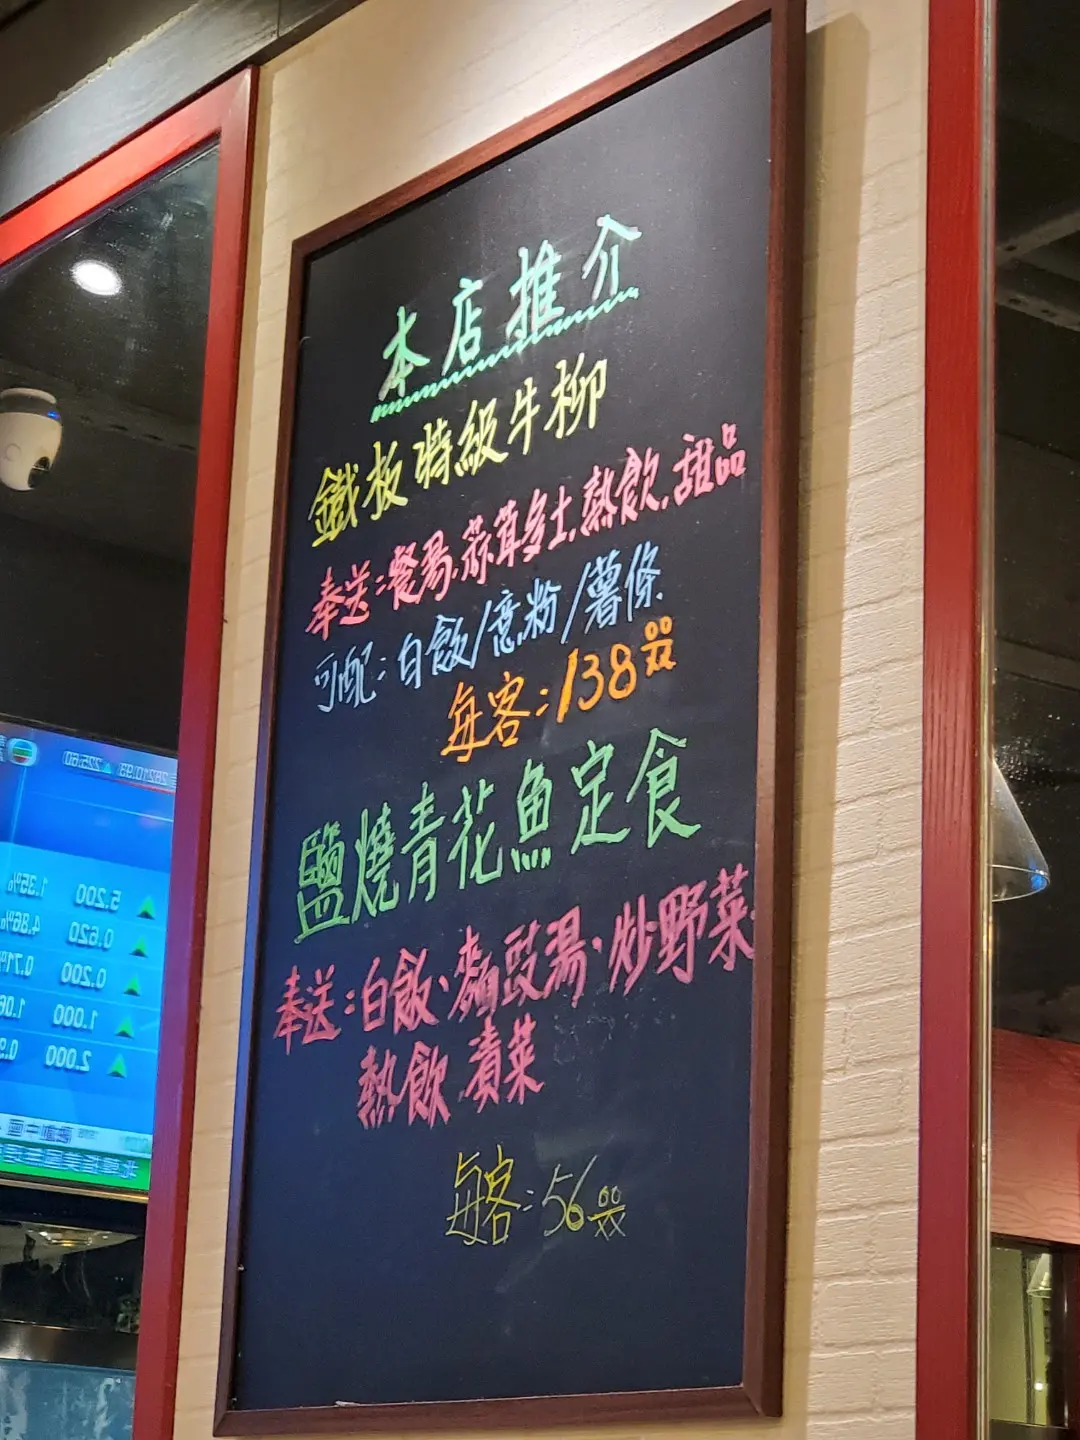 本店推介
鐵板特級牛柳
奉送:餐湯.蒜茸多士.熱飲.甜品
可配:白飯/意粉/薯條
每客:138.00
鹽燒青花魚定食
奉送:白飯、麵豉湯、炒野菜
熱飲 漬菜
每客:56.00
5.200 1.35%
0.620 4.86%
0.200 0.71%
1.000
2.000